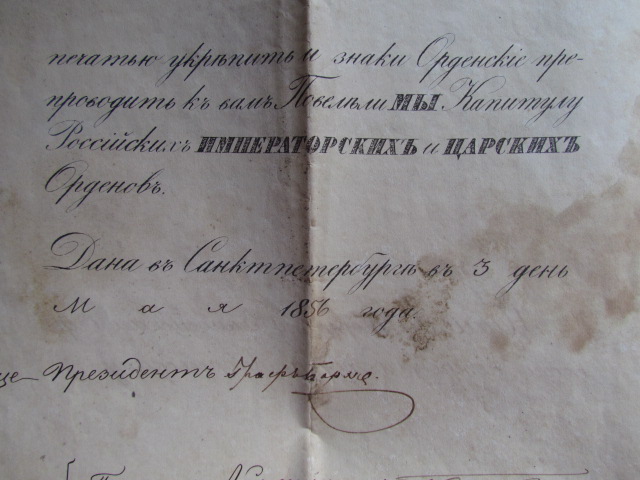 печатью укрѣпить и знаки Орденскіе пре-
проводить къ вамъ Повелѣли МЫ Капитулу
Россійскихъ ИМПЕРАТОРСКИХЪ и ЦАРСКИХЪ
Орденовъ.
Дана въ Санктпетербургѣ въ 3 день
Мая 1856 года.
це- Президентъ Графъ